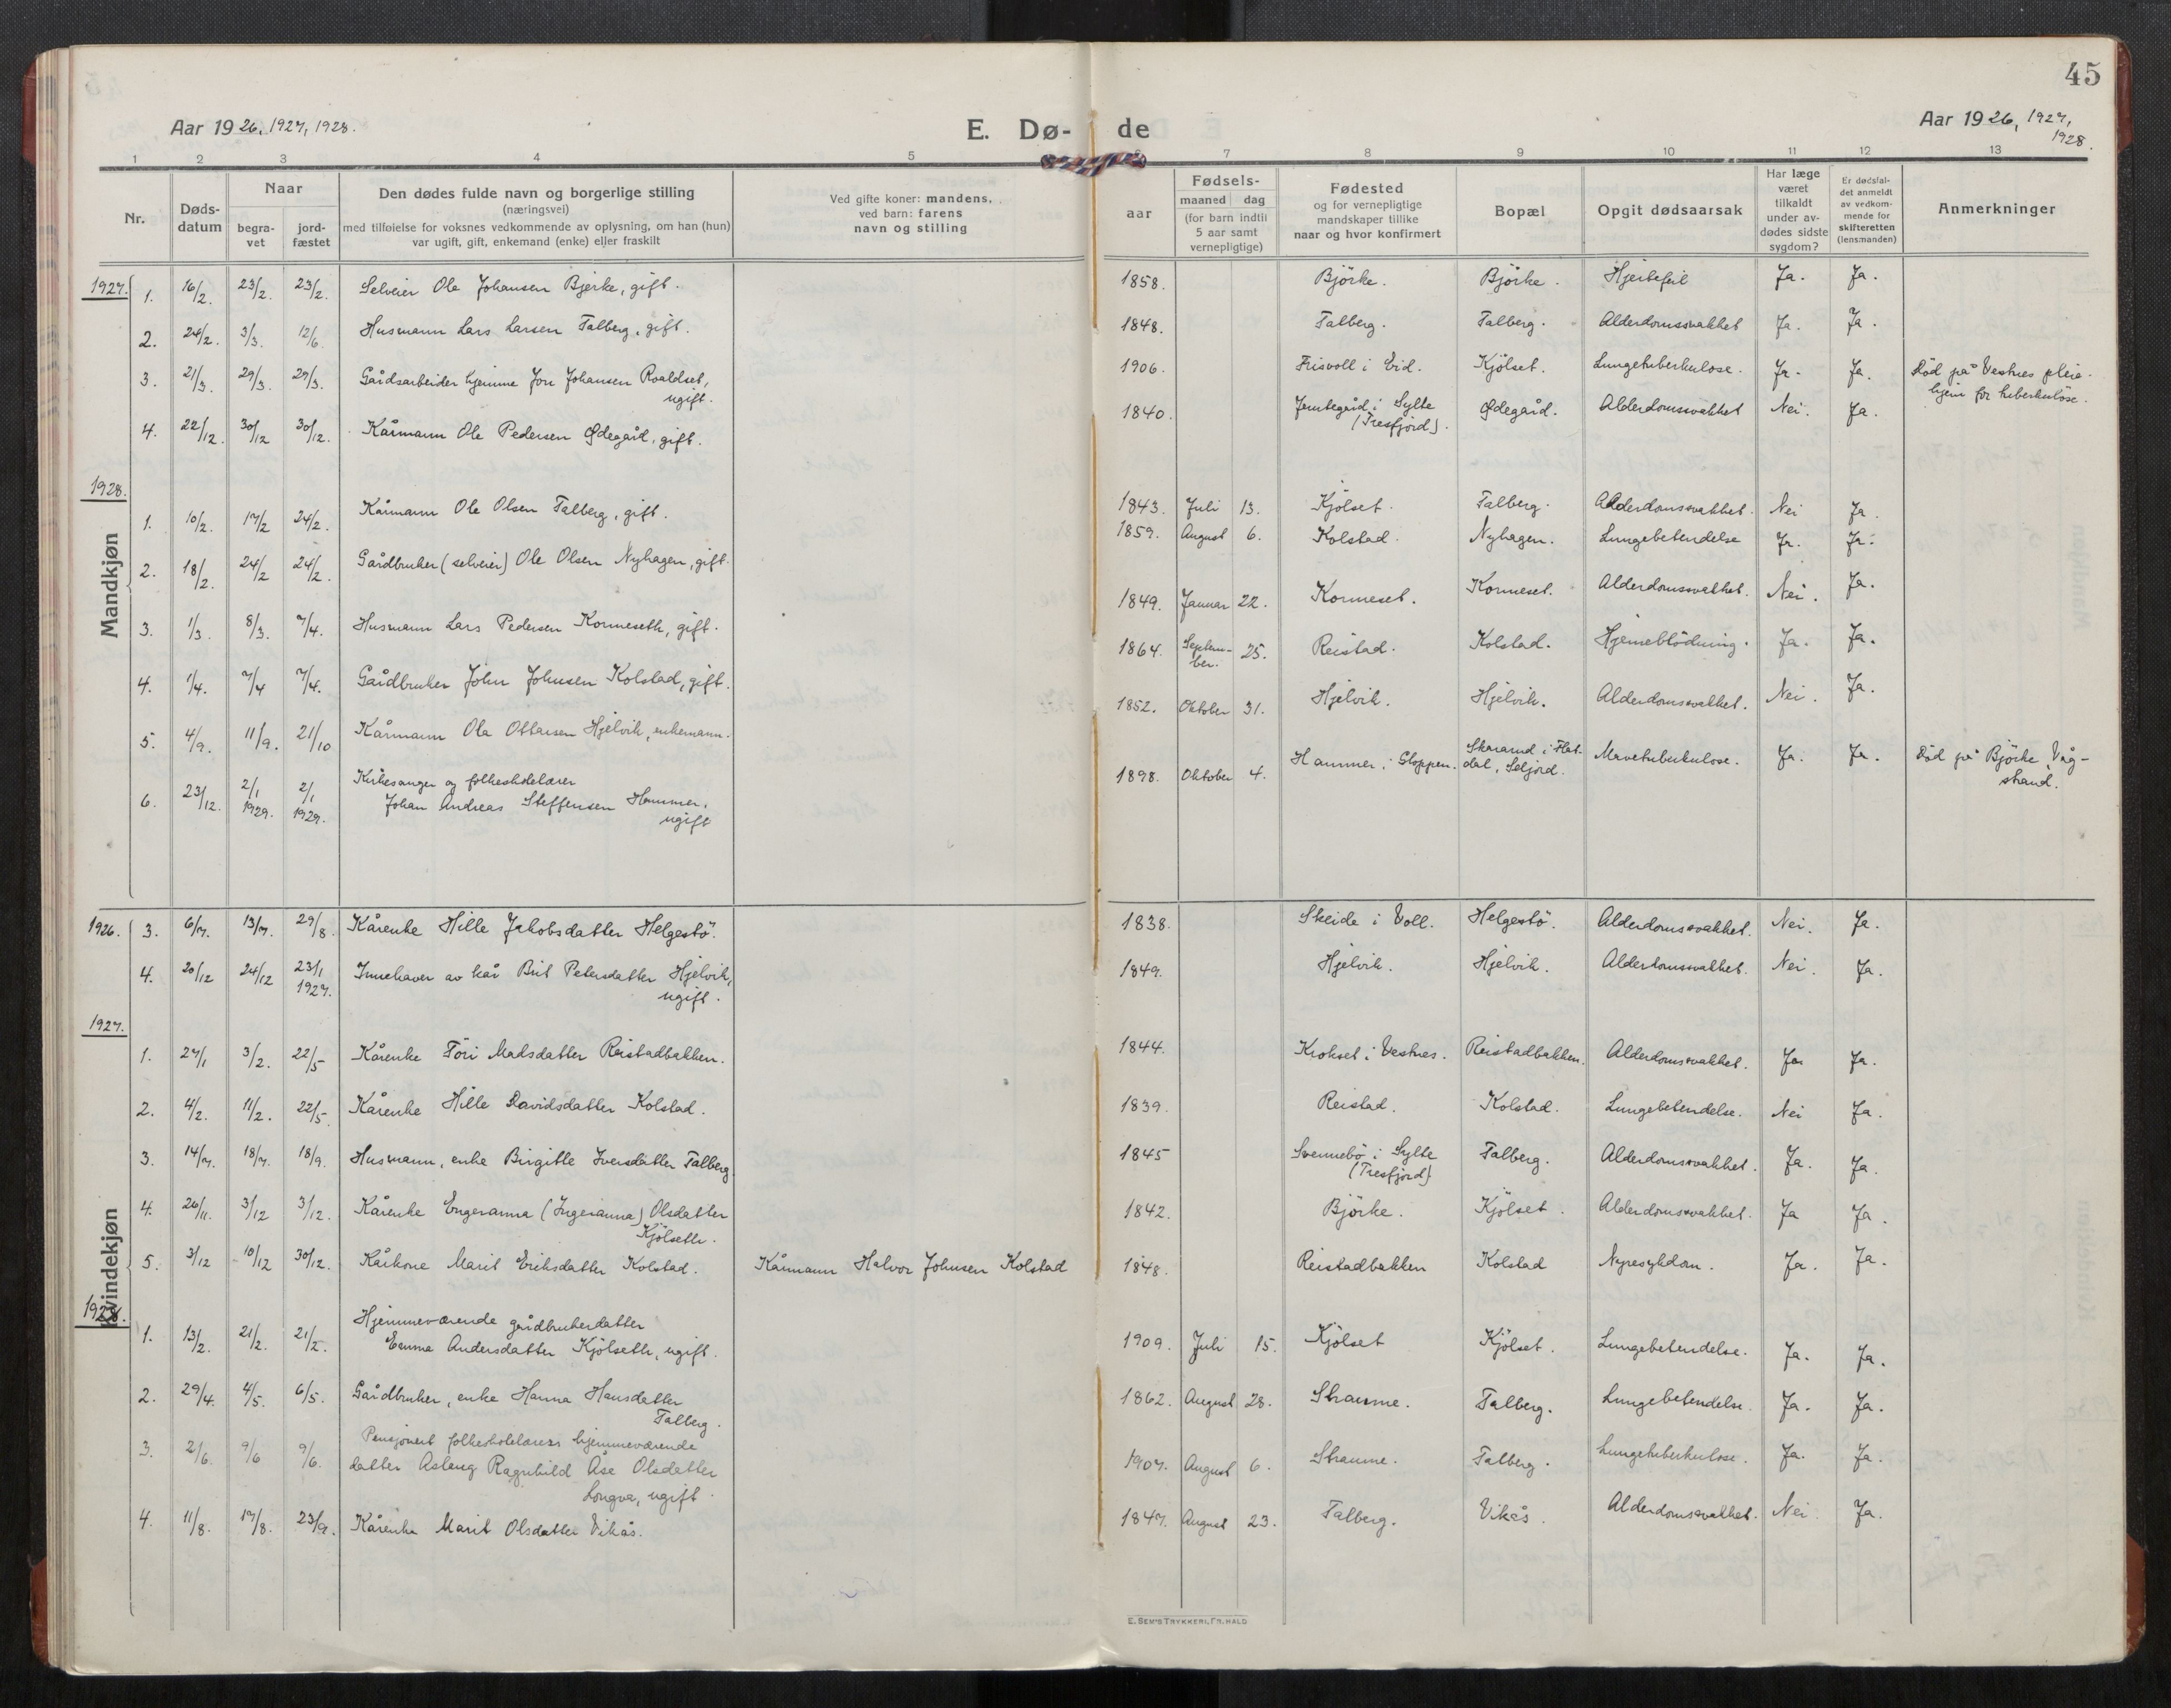 45
Aar 1926, 1927, 1928.
E. Dø- de
Aar 1926, 1927, 1928.
1 2 3 4 5 7 8 9 10 11 12 13
Nr.
Døds-datum
Naar
begra-vet
jord-fæstet
Den dødes fulde navn og borgerlige stilling
(næringsvei)
med tilføielse for voksnes vedkommende av oplysning, om han (hun)
var ugift, gift, enkemand (enke) eller fraskilt
Ved gifte koner: mandens,
ved barn: farens
navn og stilling
aar
Fødsels-
maaned dag
(for barn indtil
5 aar samt
vernepligtige)
Fødested
og for vernepligtige
mandskaper tillike
naar og hvor konfirmert
Bopæl
Opgit dødsaarsak
Har læge
været
tilkaldt
under av-
dødes sidste
sygdom?
Er dødsfal-
det anmeldt
av vedkom-
mende for
skifteretten
(lensmanden)
Anmerkninger
Mandkjøn
1927. 1. 16/2. 23/2. 23/2. Selveier Ole Johansen Bjerke, gift. 1858. Björke. Björke. Hjertefeil Ja. Ja.
2. 24/2. 3/3. 12/6. Husmann Lars Larsen Talberg, gift. 1848. Talberg. Talberg. Alderdomssvakhet Ja. Ja.
3. 21/3. 29/3. 29/3. Gårdsarbeider hjemme Jon Johansen Roaldset, ugift. 1906. Frisvoll i Eid. Kjölset. Lungetuberkulose. Ja. Ja. Död på Vestnes pleie-hjem for tuberkulöse.
4. 22/12. 30/12 30/12. Kårmann Ole Pedersen Ødegård, gift. 1840. Jemtegård i Sylte (Tresfjord). Ødegård. Alderdomssvakhet Nei. Ja.
1928.
1. 10/2. 17/2 24/2. Kårmann Ole Olsen Talberg, gift. 1843. Juli 13. Kjölset. Talberg. Alderdomssvakhet. Nei Ja.
2. 18/2. 24/2 24/2. Gårdbruker (selveier) Ole Olsen Nyhagen, gift. 1859. August 6. Kolstad. Nyhagen. Lungebetendelse Ja. Ja.
3. 1/3. 8/3. 7/4. Husmann Lars Pedersen Kormeseth, gift. 1849. Januar 22. Kormeset. Kormeset. Alderdomssvakhet. Nei. Ja.
4. 1/4. 7/4 7/4. Gårdbruker John Johnsen Kolstad, gift. 1864. September. 25. Reistad. Kolstad. Hjerneblödning. Ja. Ja.
5. 4/9. 11/9. 21/10 Kårmann Ole Ottarsen Hjelvik, enkemann. 1852. Oktober 31. Hjelvik. Hjelvik. Alderdomssvakhet. Nei. Ja.
6. 23/12. 2/1 1929. 2/1 1929. Kirkesanger og folkeskolelærer Johan Andreas Steffensen Hammer, ugift 1898. Oktober 4. Hammer i Gloppen. Skararud i Flatdal, Seljord. Mavetuberkulose. Ja. Ja. Död på Björke, Vågstrand.
Kvindekjøn
1926. 3. 6/7. 13/7. 29/8. Kårenke Hille Jakobsdatter Helgestö. 1838. Skeide i Voll. Helgestö. Alderdomssvakhet. Nei. Ja.
4. 20/12 24/12 23/1 1927. Innehaver av kår Brit Petersdatter Hjelvik, ugift. 1849. Hjelvik. Hjelvik. Alderdomssvakhet. Nei. Ja.
1927.
1. 27/1 3/2. 22/5 Kårenke Töri Madsdatter Reistadbakken. 1844. Krokset i Vestnes. Reistadbakken. Alderdomssvakhet. Ja Ja.
2. 4/2. 11/2. 22/5. Kårenke Hille Davidsdatter Kolstad. 1839. Reistad. Kolstad. Lungebetendelse. Nei Ja.
3. 14/7. 18/7. 18/9. Husmann, enke Birgitte Iversdatter Talberg 1845 Svennebö i Sylte (Tresfjord) Talberg. Alderdomssvakhet. Ja. Ja.
4. 26/11. 3/12 3/12. Kårenke Engeranna (Ingeranna) Olsdatter Kjölseth. 1842. Björke. Kjölset. Alderdomssvakhet. Ja Ja.
5. 3/12 10/12 30/12. Kårkone Marit Eriksdatter Kolstad. Kårmann Halvor Johnsen Kolstad 1848. Reistadbakken Kolstad Nyresykdom. Ja. Ja.
1928.
1. 13/2. 21/2. 21/2. Hjemmeværende gårdbrukerdatter Emma Andersdatter Kjölseth, ugift. 1909. Juli 15. Kjölset Kjölset. Lungebetendelse. Ja. Ja.
2. 29/4. 4/5. 6/5. Gårdbruker, enke Hanna Hansdatter Talberg. 1862. August 28. Straume. Talberg. Lungebetendelse. Ja. Ja.
3. 2/6. 9/6 9/6. Pensjonert folkeskolelærers hjemmeværende datter Aslaug Ragnhild Åse Olsdatter Longva, ugift. 1907. August 6. Straume. Talberg. Lungetuberkulose. Ja. Ja.
4. 11/8. 17/8. 23/9. Kårenke Marit Olsdatter Vikås. 1847. August 23. Talberg. Vikås. Alderdomssvakhet. Nei. Ja.
E. SEM'S TRYKKERI, FR.HALD